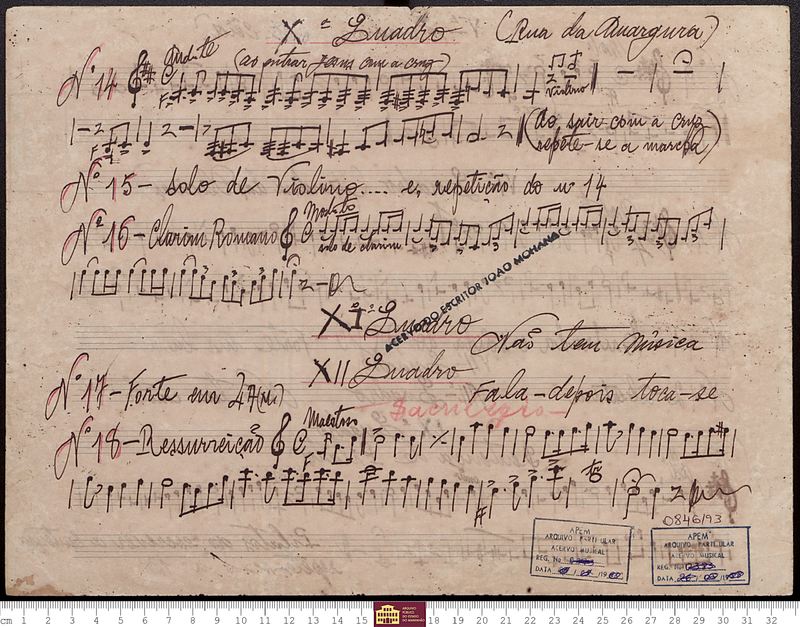 Xº Quadro (Rua da Amargura)
Nº 14 Andte (ao entrar Jesus com a cruz)
F Violino
F (Ao sair com a cruz
repete-se a marcha)
Nº 15 - Solo de Violino.... e, repetição do nº 14
Nº 16 - Clarim Romano Modto
solo de clarim
ACERVO DO ESCRITOR JOAO MOHANA
XIº Quadro Não tem Música
XII Quadro
Nº 17 - Forte em LA(m) Fala-depois toca-se
Sacrilegio
Nº 18 - Ressurreição Maestoso
F
0846/93
APEM
ARQUIVO PARTICULAR
ACERVO MUSICAL
REG. No
DATA
APEM
ARQUIVO PARTICULAR
ACERVO MUSICAL
REG. No
DATA
cm 1 2 3 4 5 6 7 8 9 10 11 12 13 14 15 18 19 20 21 22 23 24 25 26 27 28 29 30 31 32
ARQUIVO PÚBLICO DO ESTADO DO MARANHÃO